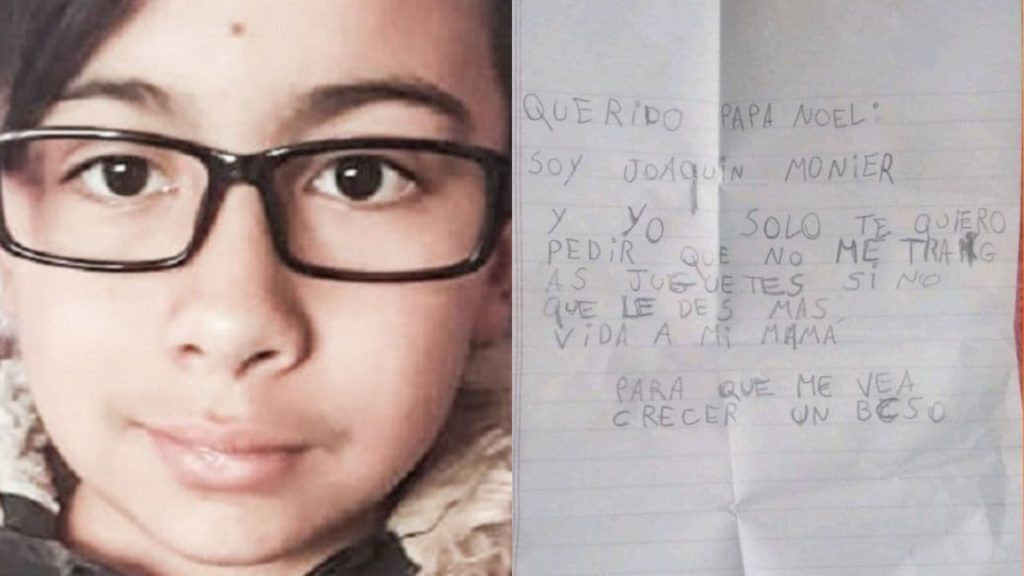 QUERIDO PAPA NOEL:
SOY JOAQUIN MONIER
Y YO SOLO TE QUIERO
PEDIR QUE NO ME TRAIG
AS JUGUETES SI NO
QUE LE DES MAS
VIDA A MI MAMÁ
PARA QUE ME VEA
CRECER UN BESO